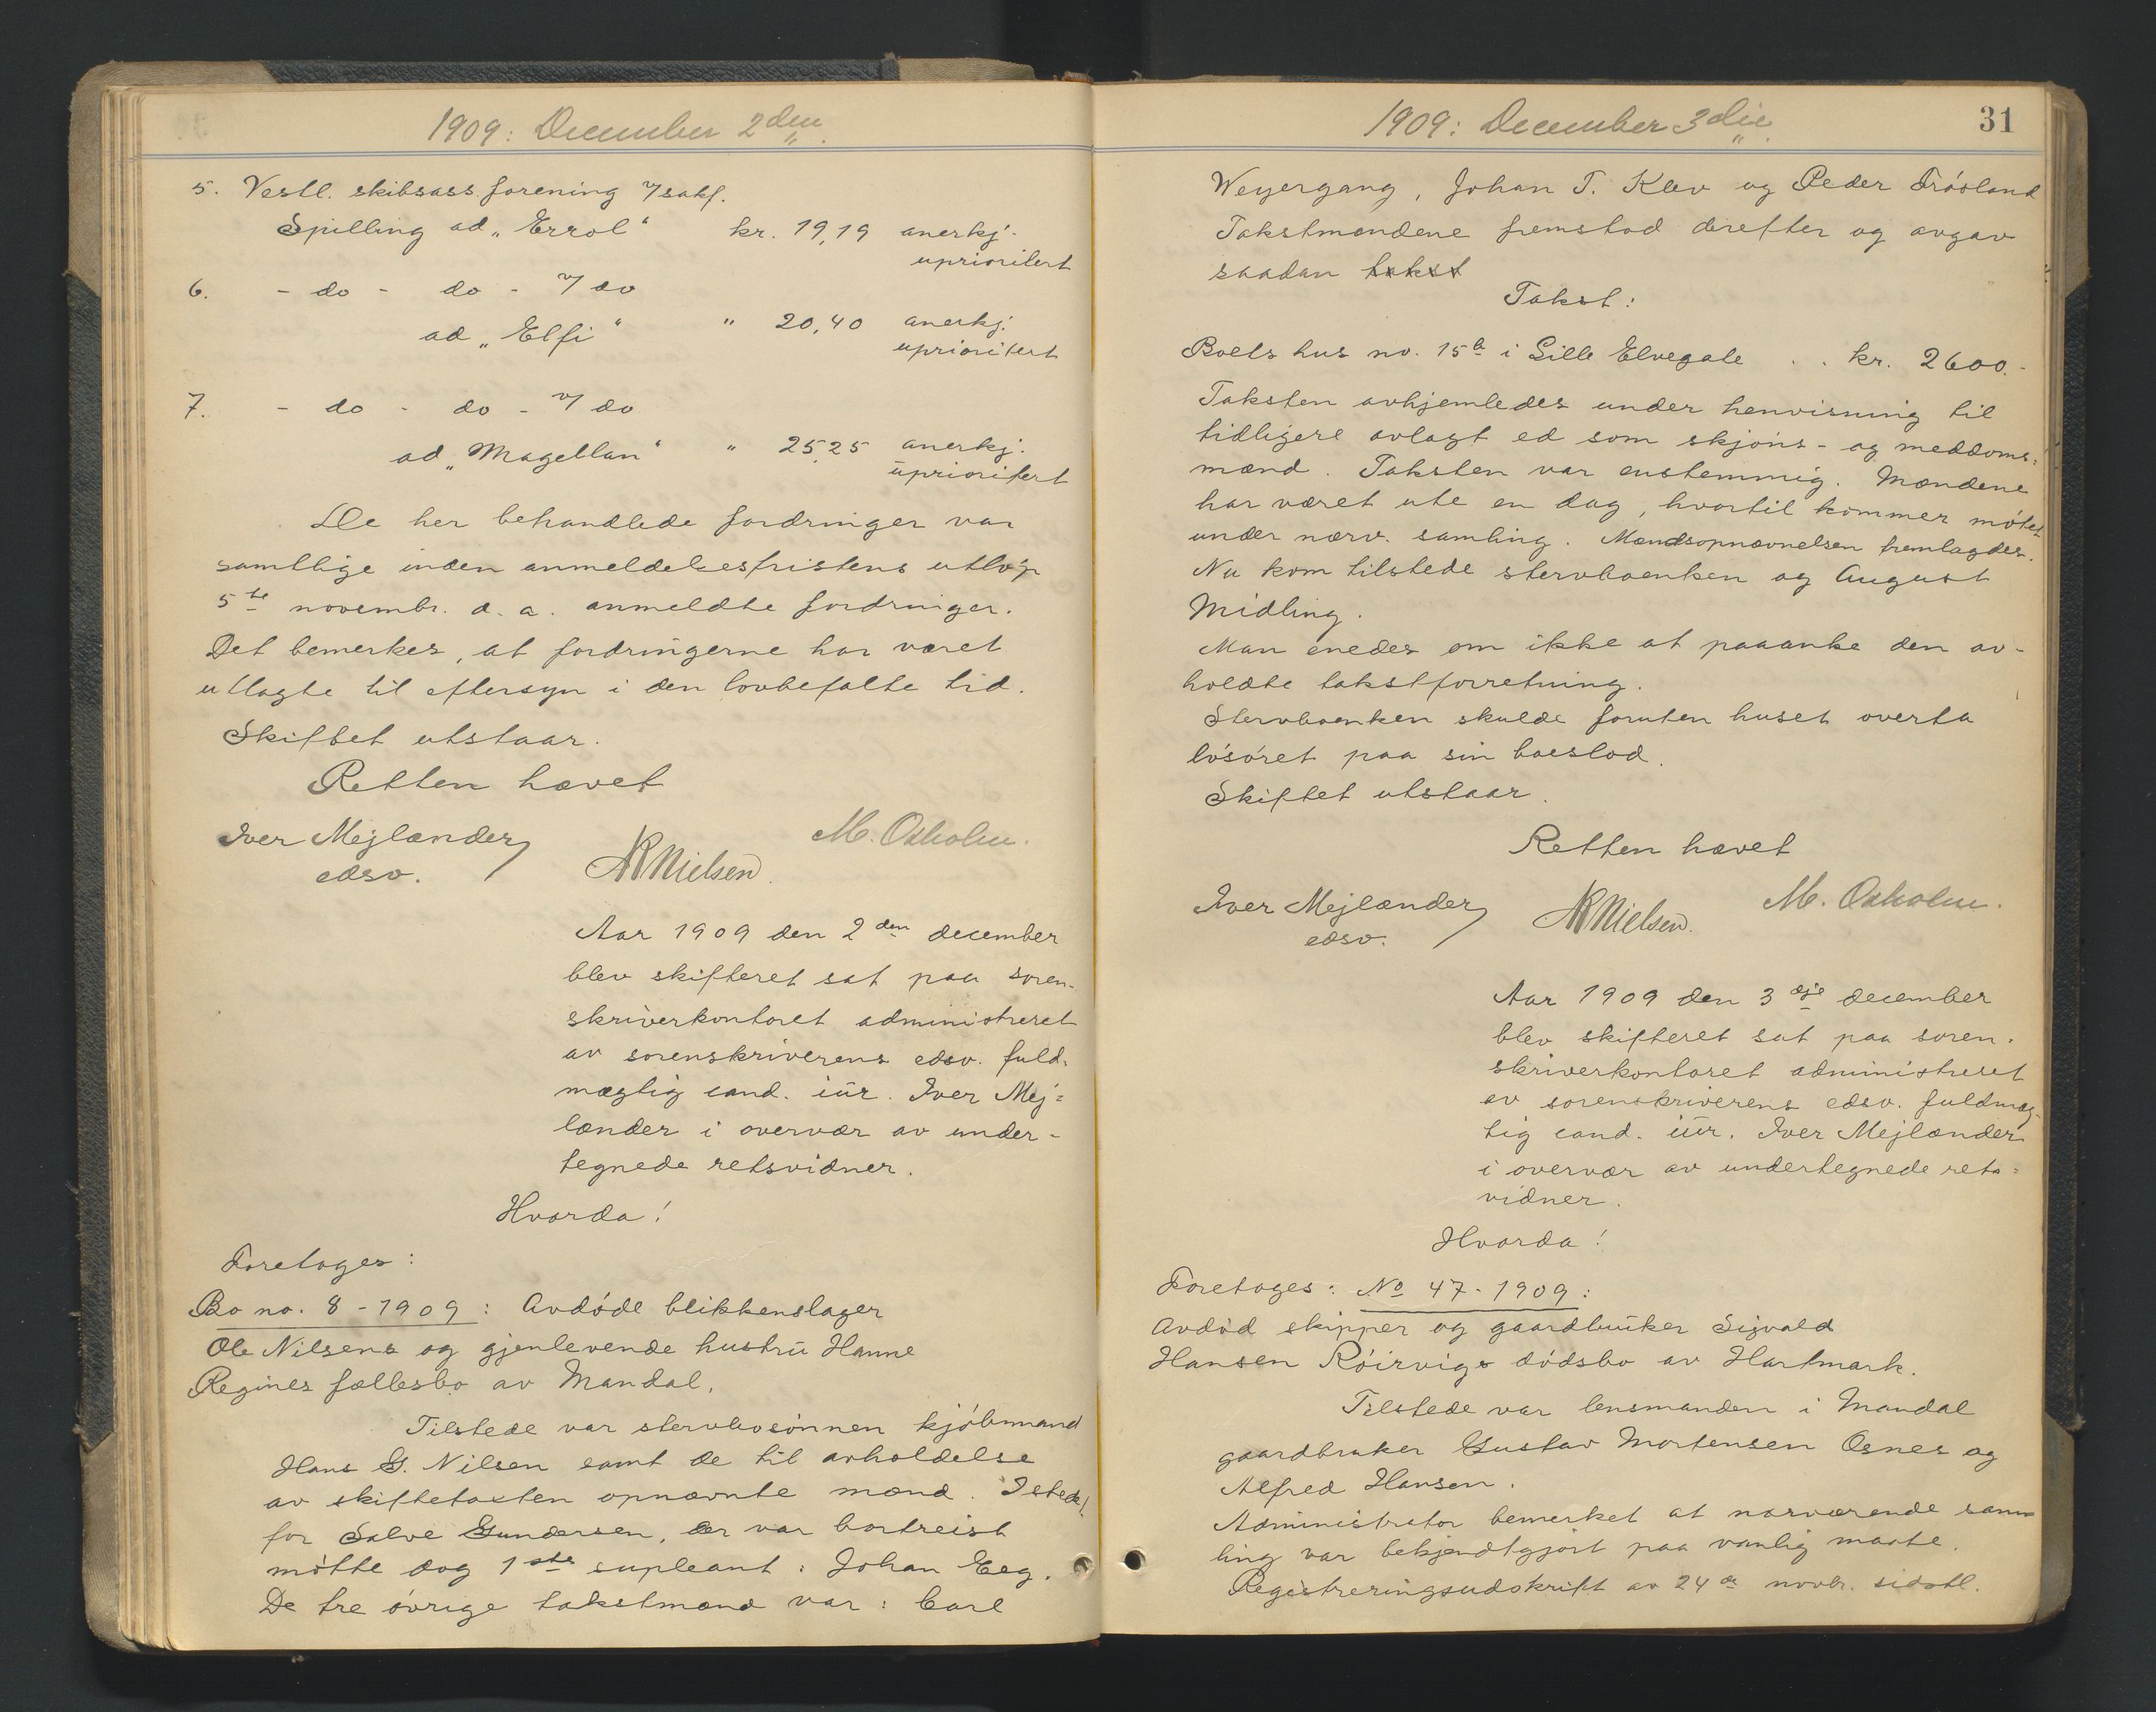 1909: December 2den
5. Vestl. skibsass. forening v/ sakf.
Spilling ad „Errol“ kr. 19,19 anerkj.
uprioritert
6. - do - do - v/ do
ad „Elfi“ " 20,40 anerkj.
uprioritert
7. - do - do - v/ do
ad „Magellan“ " 25,25 anerkj.
uprioritert
De her behandlede fordringer var
samtlige inden anmeldelsesfristens utløp
5te novembr. d. a. anmeldte fordringer.
Det bemerkes, at fordringerne har været
utlagte til eftersyn i den lovbefalte tid.
Skiftet utstaar.
Retten hævet
Iver Mejlænder
edsv.
NR Nielsen.
M. Oxholm.
Aar 1909 den 2den december
blev skifteret sat paa soren-
skriverkontoret administreret
av sorenskriverens edsv. fuld-
mægtig cand. iur. Iver Mej=
lænder i overvær av under-
tegnede retsvidner.
Hvorda!
Foretoges:
Bo no. 8 - 1909: Avdøde blikkenslager
Ole Nilsens og gjenlevende hustru Hanne
Regines fællesbo av Mandal.
Tilstede var stervbosønnen kjøbmand
Hans G. Nilsen samt de til avholdelse
av skiftetaxten opnævnte mænd. Istedet
for Salve Gundersen, der var bortreist
møtte dog 1ste supleant: Johan Eeg.
De tre øvrige takstmænd var: Carl
1909: December 3die
31
Weyergang, Johan T. Klev og Peder Frøsland
Takstmændene fremstod derefter og avgav
saadan takst
Takst:
Boets hus no. 15b i Lille Elvegate . . kr. 2600.-
Taksten avhjemledes under henvisning til
tidligere avlagt ed som skjøns- og meddoms=
mænd. Taksten var enstemmig. Mændene
har været ute en dag, hvortil kommer møtet
under nærv. samling. Mændsopnævnelsen fremlagdes.
Nu kom tilstede stervboenken og August
Midling.
Man enedes om ikke at paaanke den av-
holdte takstforretning.
Stervboenken skulde foruten huset overta
løsøret paa sin boeslod.
Skiftet utstaar.
Retten hævet
Iver Mejlænder
edsv.
NR Nielsen.
M. Oxholm.
Aar 1909 den 3dje december
blev skifteret sat paa soren-
skriverkontoret administreret
av sorenskriverens edsv. fuldmæg-
tig cand. iur. Iver Mejlænder
i overvær av undertegnede rets=
vidner.
Hvorda!
Foretoges: No 47 - 1909:
Avdød skipper og gaardbruker Sigvald
Hansen Røirvigs dødsbo av Hartmark.
Tilstede var lensmanden i Mandal
gaardbruker Gustav Mortensen Osnes og
Alfred Hansen.
Administrator bemerket at nærværende sam-
ling var bekjendtgjort paa vanlig maate.
Registreringsudskrift av 24de novbr. sidstl.